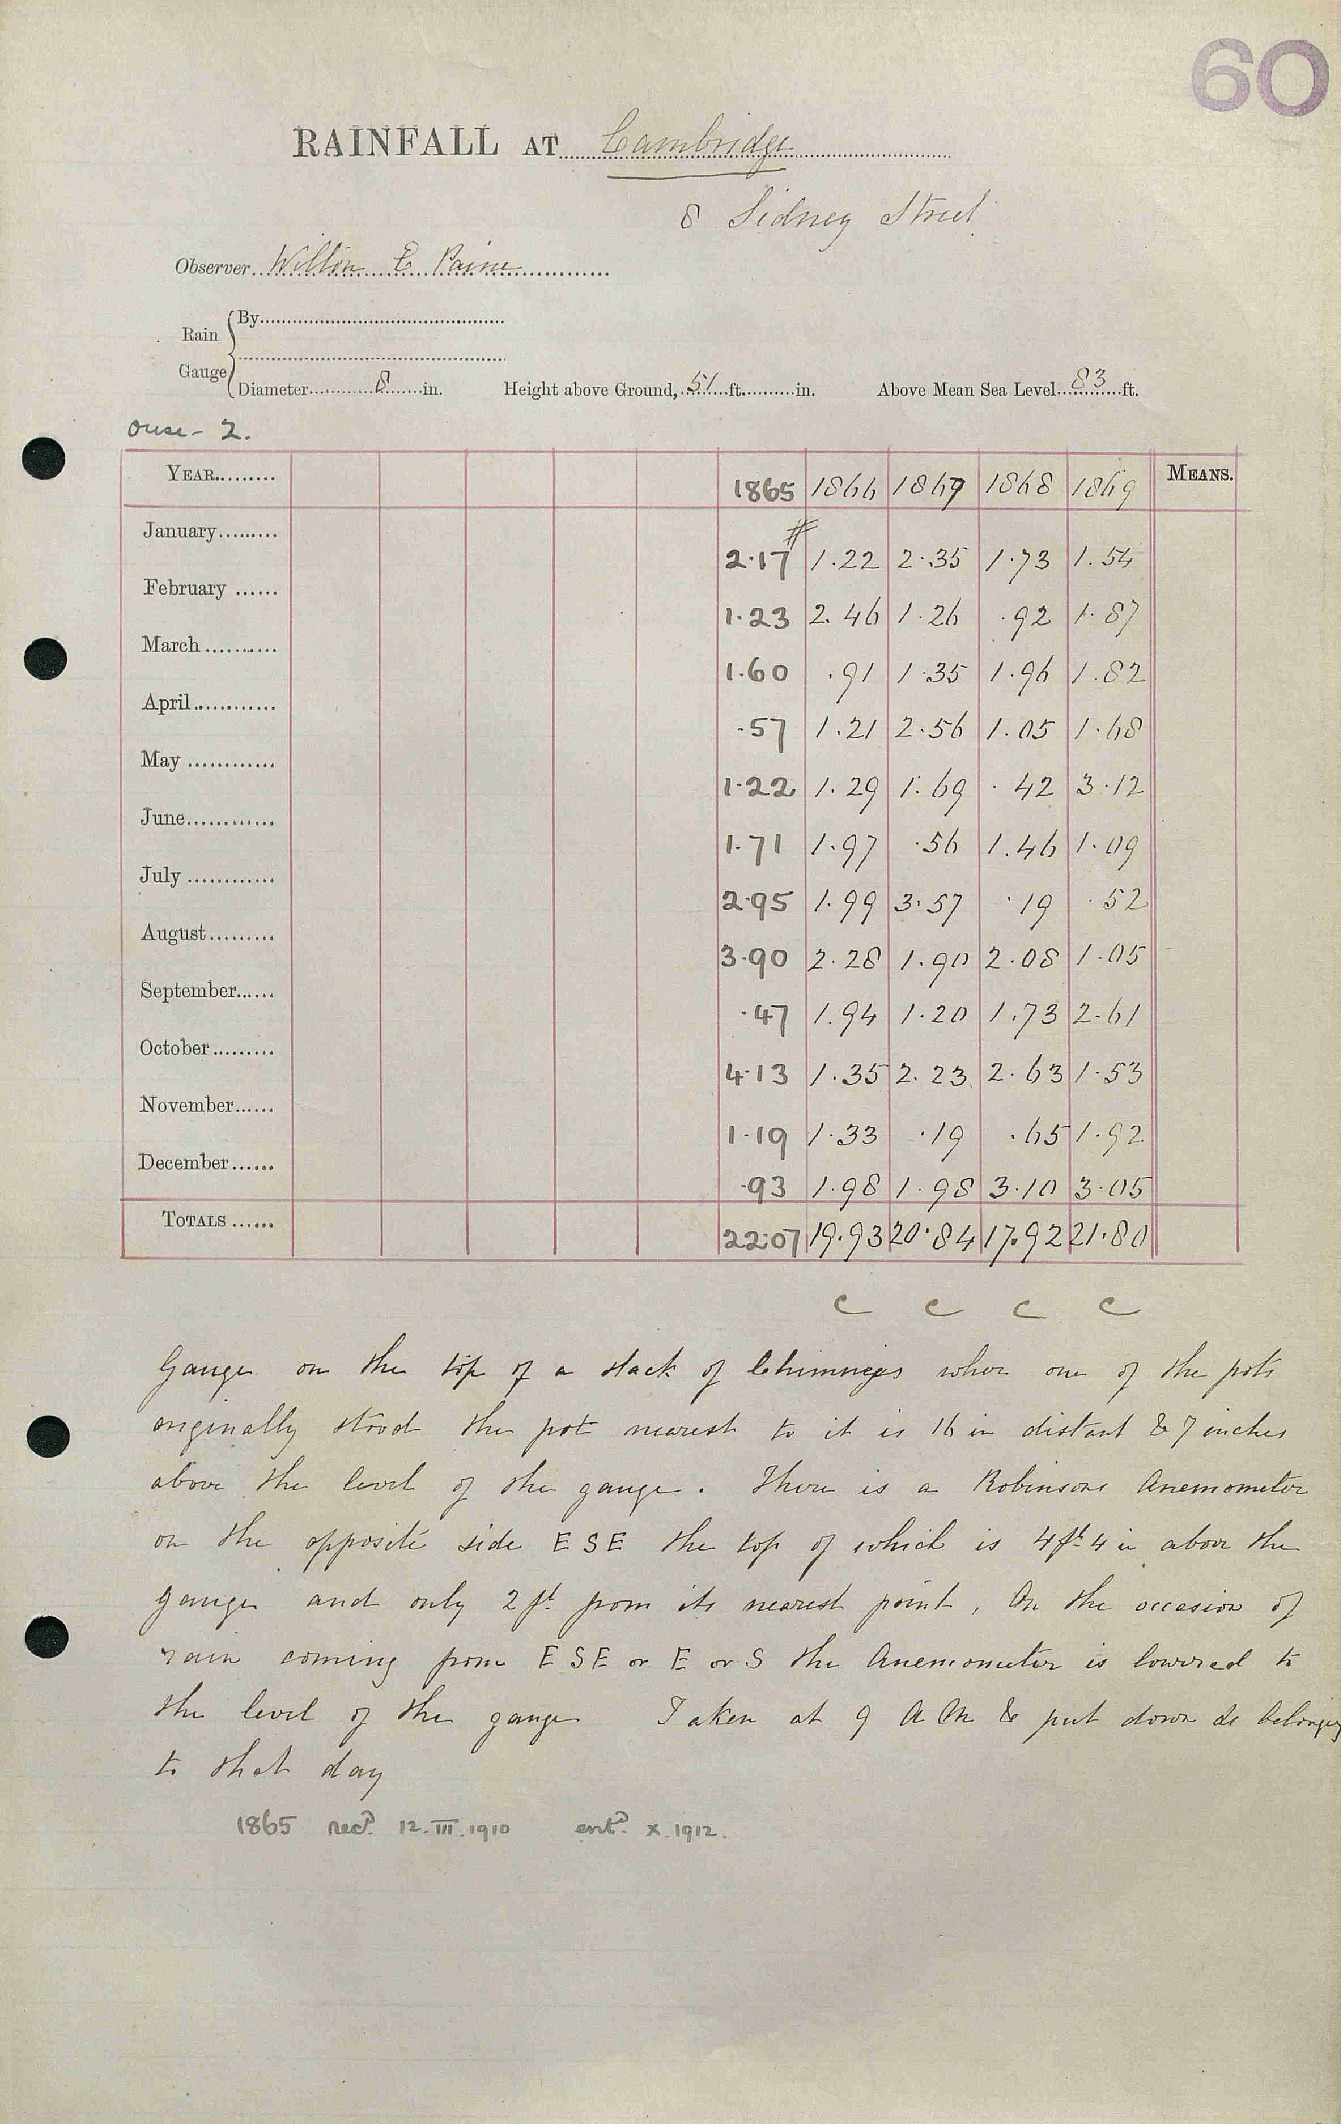 60
RAINFALL AT Cambridge
8 Sidney Street
Observer Wilton E Paine
Rain Gauge
By
Diameter 8 in. Height above Ground, 51 ft. in. Above Mean Sea Level 83 ft.
Ouse - 2.
YEAR 1865 1866 1867 1868 1869 MEANS.
January 2.17 # 1.22 2.35 1.73 1.54
February 1.23 2.46 1.26 .92 1.87
March 1.60 .91 1.35 1.96 1.82
April .57 1.21 2.56 1.05 1.68
May 1.22 1.29 1.69 .42 3.12
June 1.71 1.97 .56 1.46 1.09
July 2.95 1.99 3.57 .19 .52
August 3.90 2.28 1.90 2.08 1.05
September .47 1.94 1.20 1.73 2.61
October 4.13 1.35 2.23 2.63 1.53
November 1.19 1.33 .19 .65 1.92
December .93 1.98 1.98 3.10 3.05
TOTALS 22.07 19.93 20.84 17.92 21.80
c c c c
Gauge on the top of a stack of Chimneys where one of the pots
originally stood the pot nearest to it is 16 in distant & 7 inches
above the level of the gauge. There is a Robinsons Anemometer
on the opposite side ESE the top of which is 4ft 4 in above the
gauge and only 2 ft from its nearest point, On the occasion of
rain coming from ESE or E or S the Anemometer is lowered to
the level of the gauge Taken at 9 AM & put down as belonging
to that day
1865 recd. 12.III.1910 entd. X.1912.